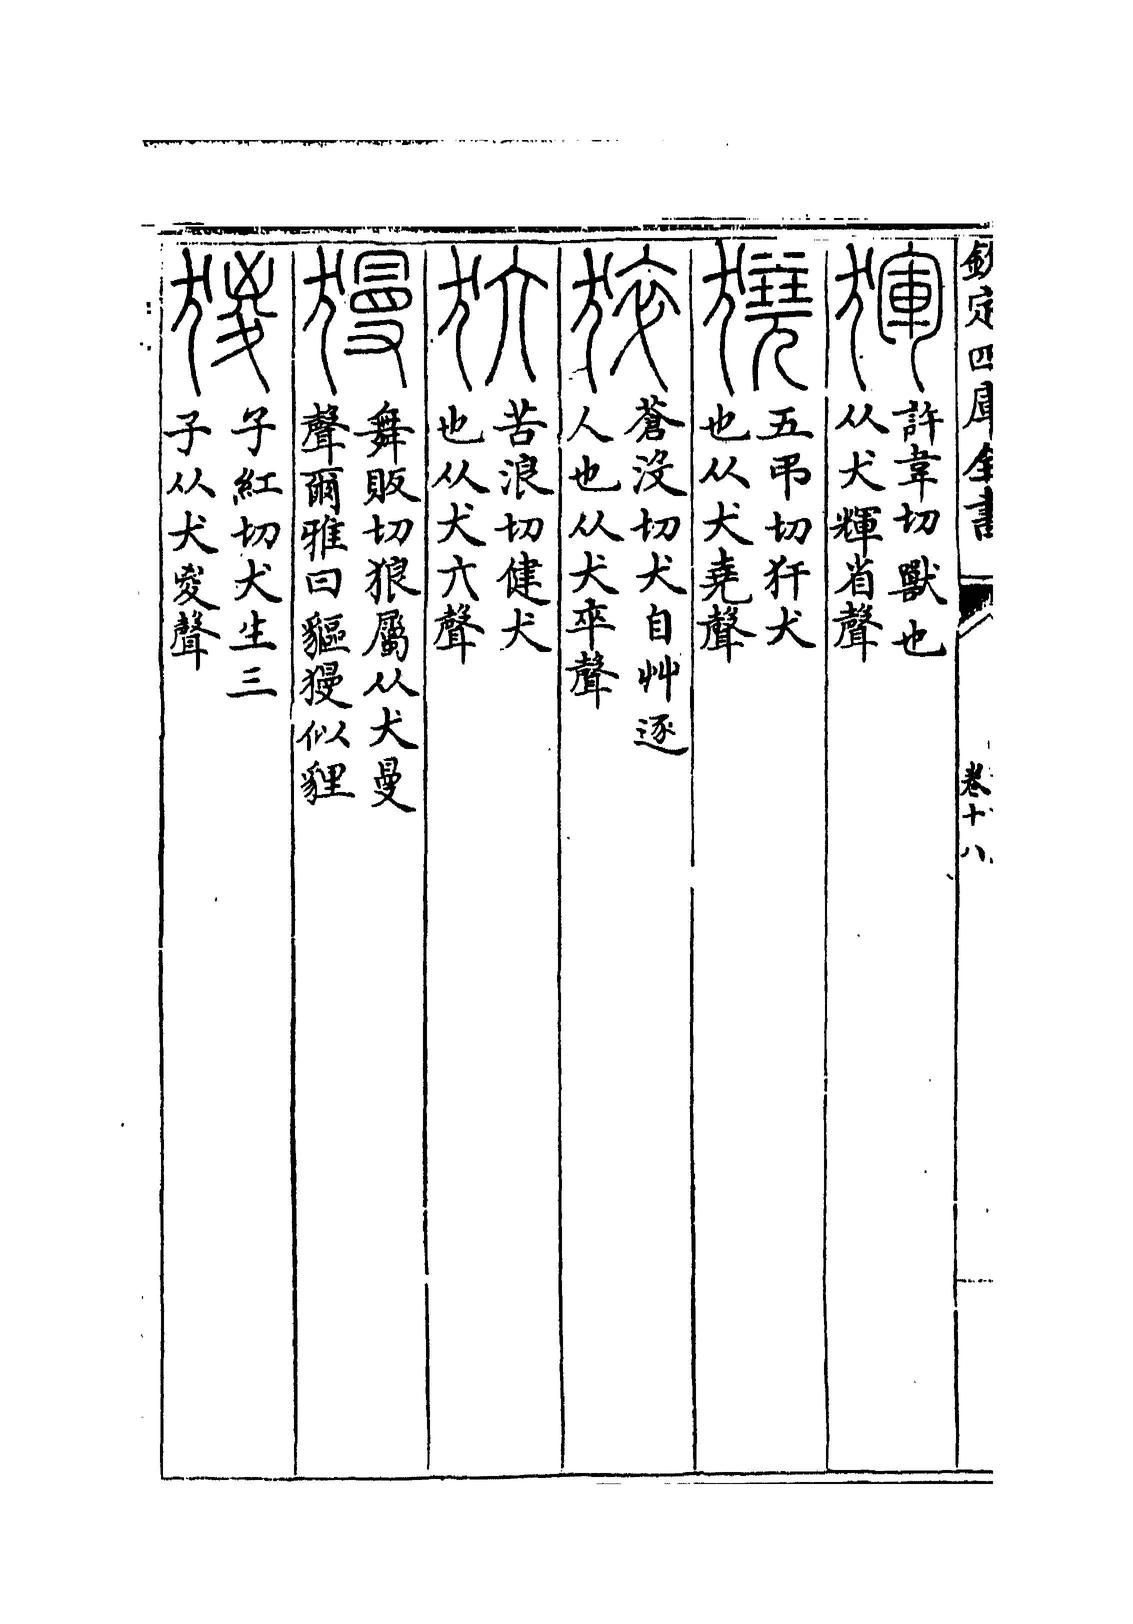 欽定四庫全書
卷十八
𤟤
許韋切獸也
从犬輝省聲
獟
五弔切犴犬
也从犬堯聲
猝
蒼沒切犬自艸逐
人也从犬卒聲
犺
苦浪切健犬
也从犬亢聲
獌
舞販切狼屬从犬曼
聲爾雅曰貙獌似貍
猣
子紅切犬生三
子从犬㚇聲